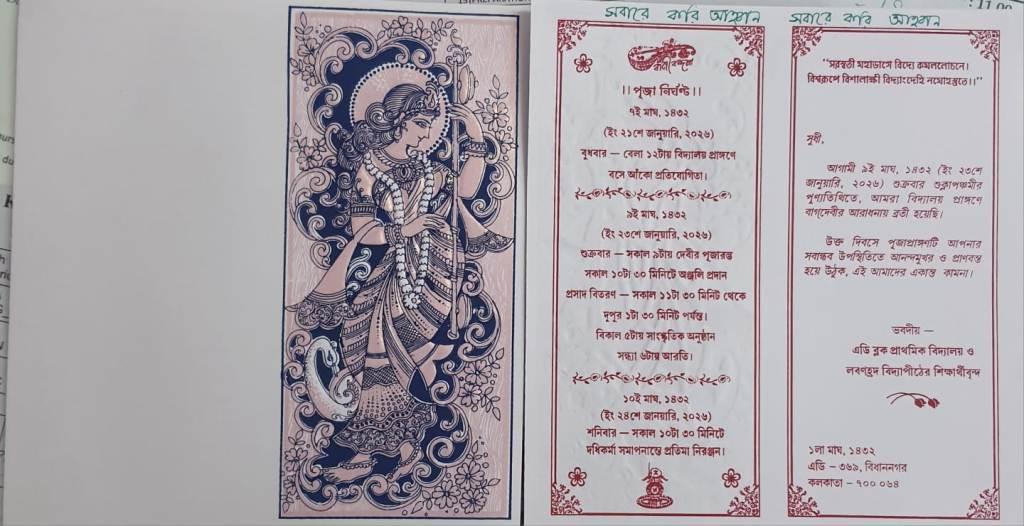 সবারে করি আহ্বান
।। পূজা নির্ঘণ্ট ।।
৭ই মাঘ, ১৪৩২
(ইং ২১শে জানুয়ারি, ২০২৬)
বুধবার — বেলা ১২টায় বিদ্যালয় প্রাঙ্গণে
বসে আঁকো প্রতিযোগিতা।
৯ই মাঘ, ১৪৩২
(ইং ২৩শে জানুয়ারি, ২০২৬)
শুক্রবার — সকাল ৯টায় দেবীর পূজারম্ভ
সকাল ১০টা ৩০ মিনিটে অঞ্জলি প্রদান
প্রসাদ বিতরণ — সকাল ১১টা ৩০ মিনিট থেকে
দুপুর ১টা ৩০ মিনিট পর্যন্ত।
বিকাল ৫টায় সাংস্কৃতিক অনুষ্ঠান
সন্ধ্যা ৬টায় আরতি।
১০ই মাঘ, ১৪৩২
(ইং ২৪শে জানুয়ারি, ২০২৬)
শনিবার — সকাল ১০টা ৩০ মিনিটে
দধিকর্মা সমাপনান্তে প্রতিমা নিরঞ্জন।
সবারে করি আহ্বান
"সরস্বতী মহাভাগে বিদ্যে কমললোচনে।
বিশ্বরূপে বিশালাক্ষী বিদ্যাংদেহি নমোহস্তুতে।।"
সুধী,
আগামী ৯ই মাঘ, ১৪৩২ (ইং ২৩শে
জানুয়ারি, ২০২৬) শুক্রবার শুক্লাপঞ্চমীর
পুণ্যতিথিতে, আমরা বিদ্যালয় প্রাঙ্গণে
বাগ্‌দেবীর আরাধনায় ব্রতী হয়েছি।
উক্ত দিবসে পূজাপ্রাঙ্গণটি আপনার
সবান্ধব উপস্থিতিতে আনন্দমুখর ও প্রাণবন্ত
হয়ে উঠুক, এই আমাদের একান্ত কামনা।
ভবদীয় —
এডি ব্লক প্রাথমিক বিদ্যালয় ও
লবণহ্রদ বিদ্যাপীঠের শিক্ষার্থীবৃন্দ
১লা মাঘ, ১৪৩২
এডি – ৩৬৯, বিধাননগর
কলকাতা – ৭০০ ০৬৪